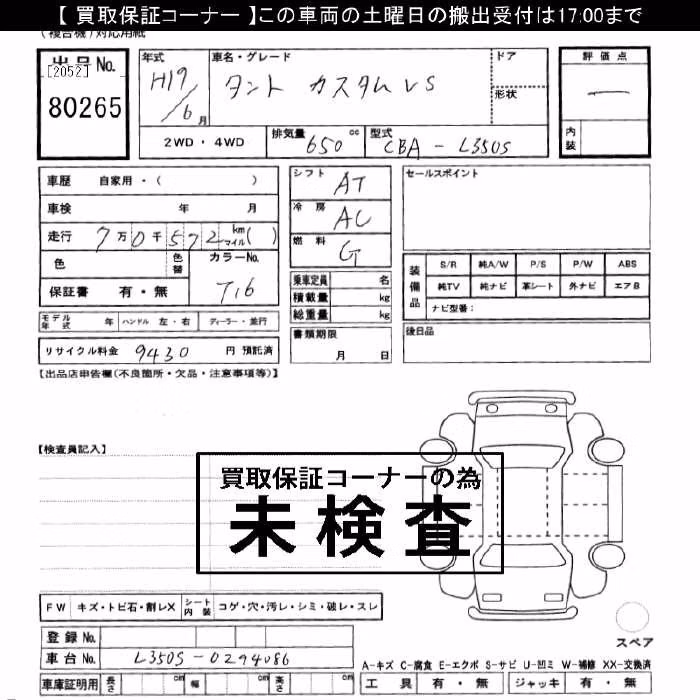 【 買取保証コーナー 】この車両の土曜日の搬出受付は17:00まで
(複合機)対応用紙
出品No.
[2052]
80265
年式 H19/6月
車名・グレード タント カスタムVS
ドア
形状
評価点
—
内装
2WD・4WD
排気量 650 cc
型式 CBA-L350S
車歴 自家用・( )
車検 年 月
走行 7万0千572 km マイル( )
色 色替 カラーNo. T16
保証書 有・無
シフト AT
冷房 AC
燃料 G
乗車定員 名
積載量 kg
総重量 kg
セールスポイント
装備品
S/R 純A/W P/S P/W ABS
純TV 純ナビ 革シート 外ナビ エアB
ナビ型番:
モデル年式 年 ハンドル 左・右 ディーラー・並行
書類期限 月 日
後日品
リサイクル料金 9430 円 預託済
【出品店申告欄(不良箇所・欠品・注意事項等)】
【検査員記入】
買取保証コーナーの為
未検査
FW キズ・トビ石・割レX シート内装 コゲ・穴・汚レ・シミ・破レ・スレ
スペア
登録No.
車台No. L350S-0294086
A-キズ C-腐食 E-エクボ S-サビ U-凹ミ W-補修 XX-交換済
車庫証明用 長さ cm 幅 cm 高さ cm
工具 有・無 ジャッキ 有・無